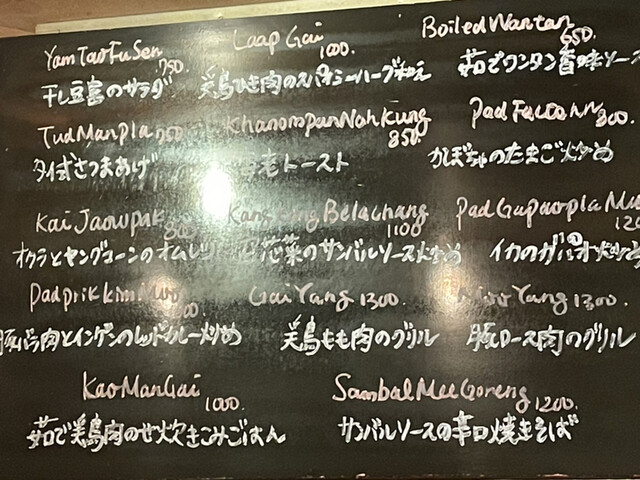 Yam Tao Fu Sen 750.
干し豆腐のサラダ
Laap Gai 1000.
鶏ひき肉のスパイシーハーブ和え
Boiled Wantan 650.
茹でワンタン 香味ソース
Tud Man pla 750
タイ式さつまあげ
Khanompan Nah Kung 850.
海老トースト
Pad Factonn 800.
かぼちゃのたまご炒め
Kai Jaow pak
オクラとヤングコーンのオムレツ
Belachang 1100
空芯菜のサンバルソース炒め
Pad Gapao pla Mu
イカのガパオ炒め
Pad prik
豚バラ肉とインゲンのレッドカレー炒め
Gai Yang 1300.
鶏もも肉のグリル
Yang 1300.
豚ロース肉のグリル
Kao Man Gai 1000.
茹で鶏肉のせ炊きこみごはん
Sambal Mee Goreng 1200.
サンバルソースの辛口焼きそば